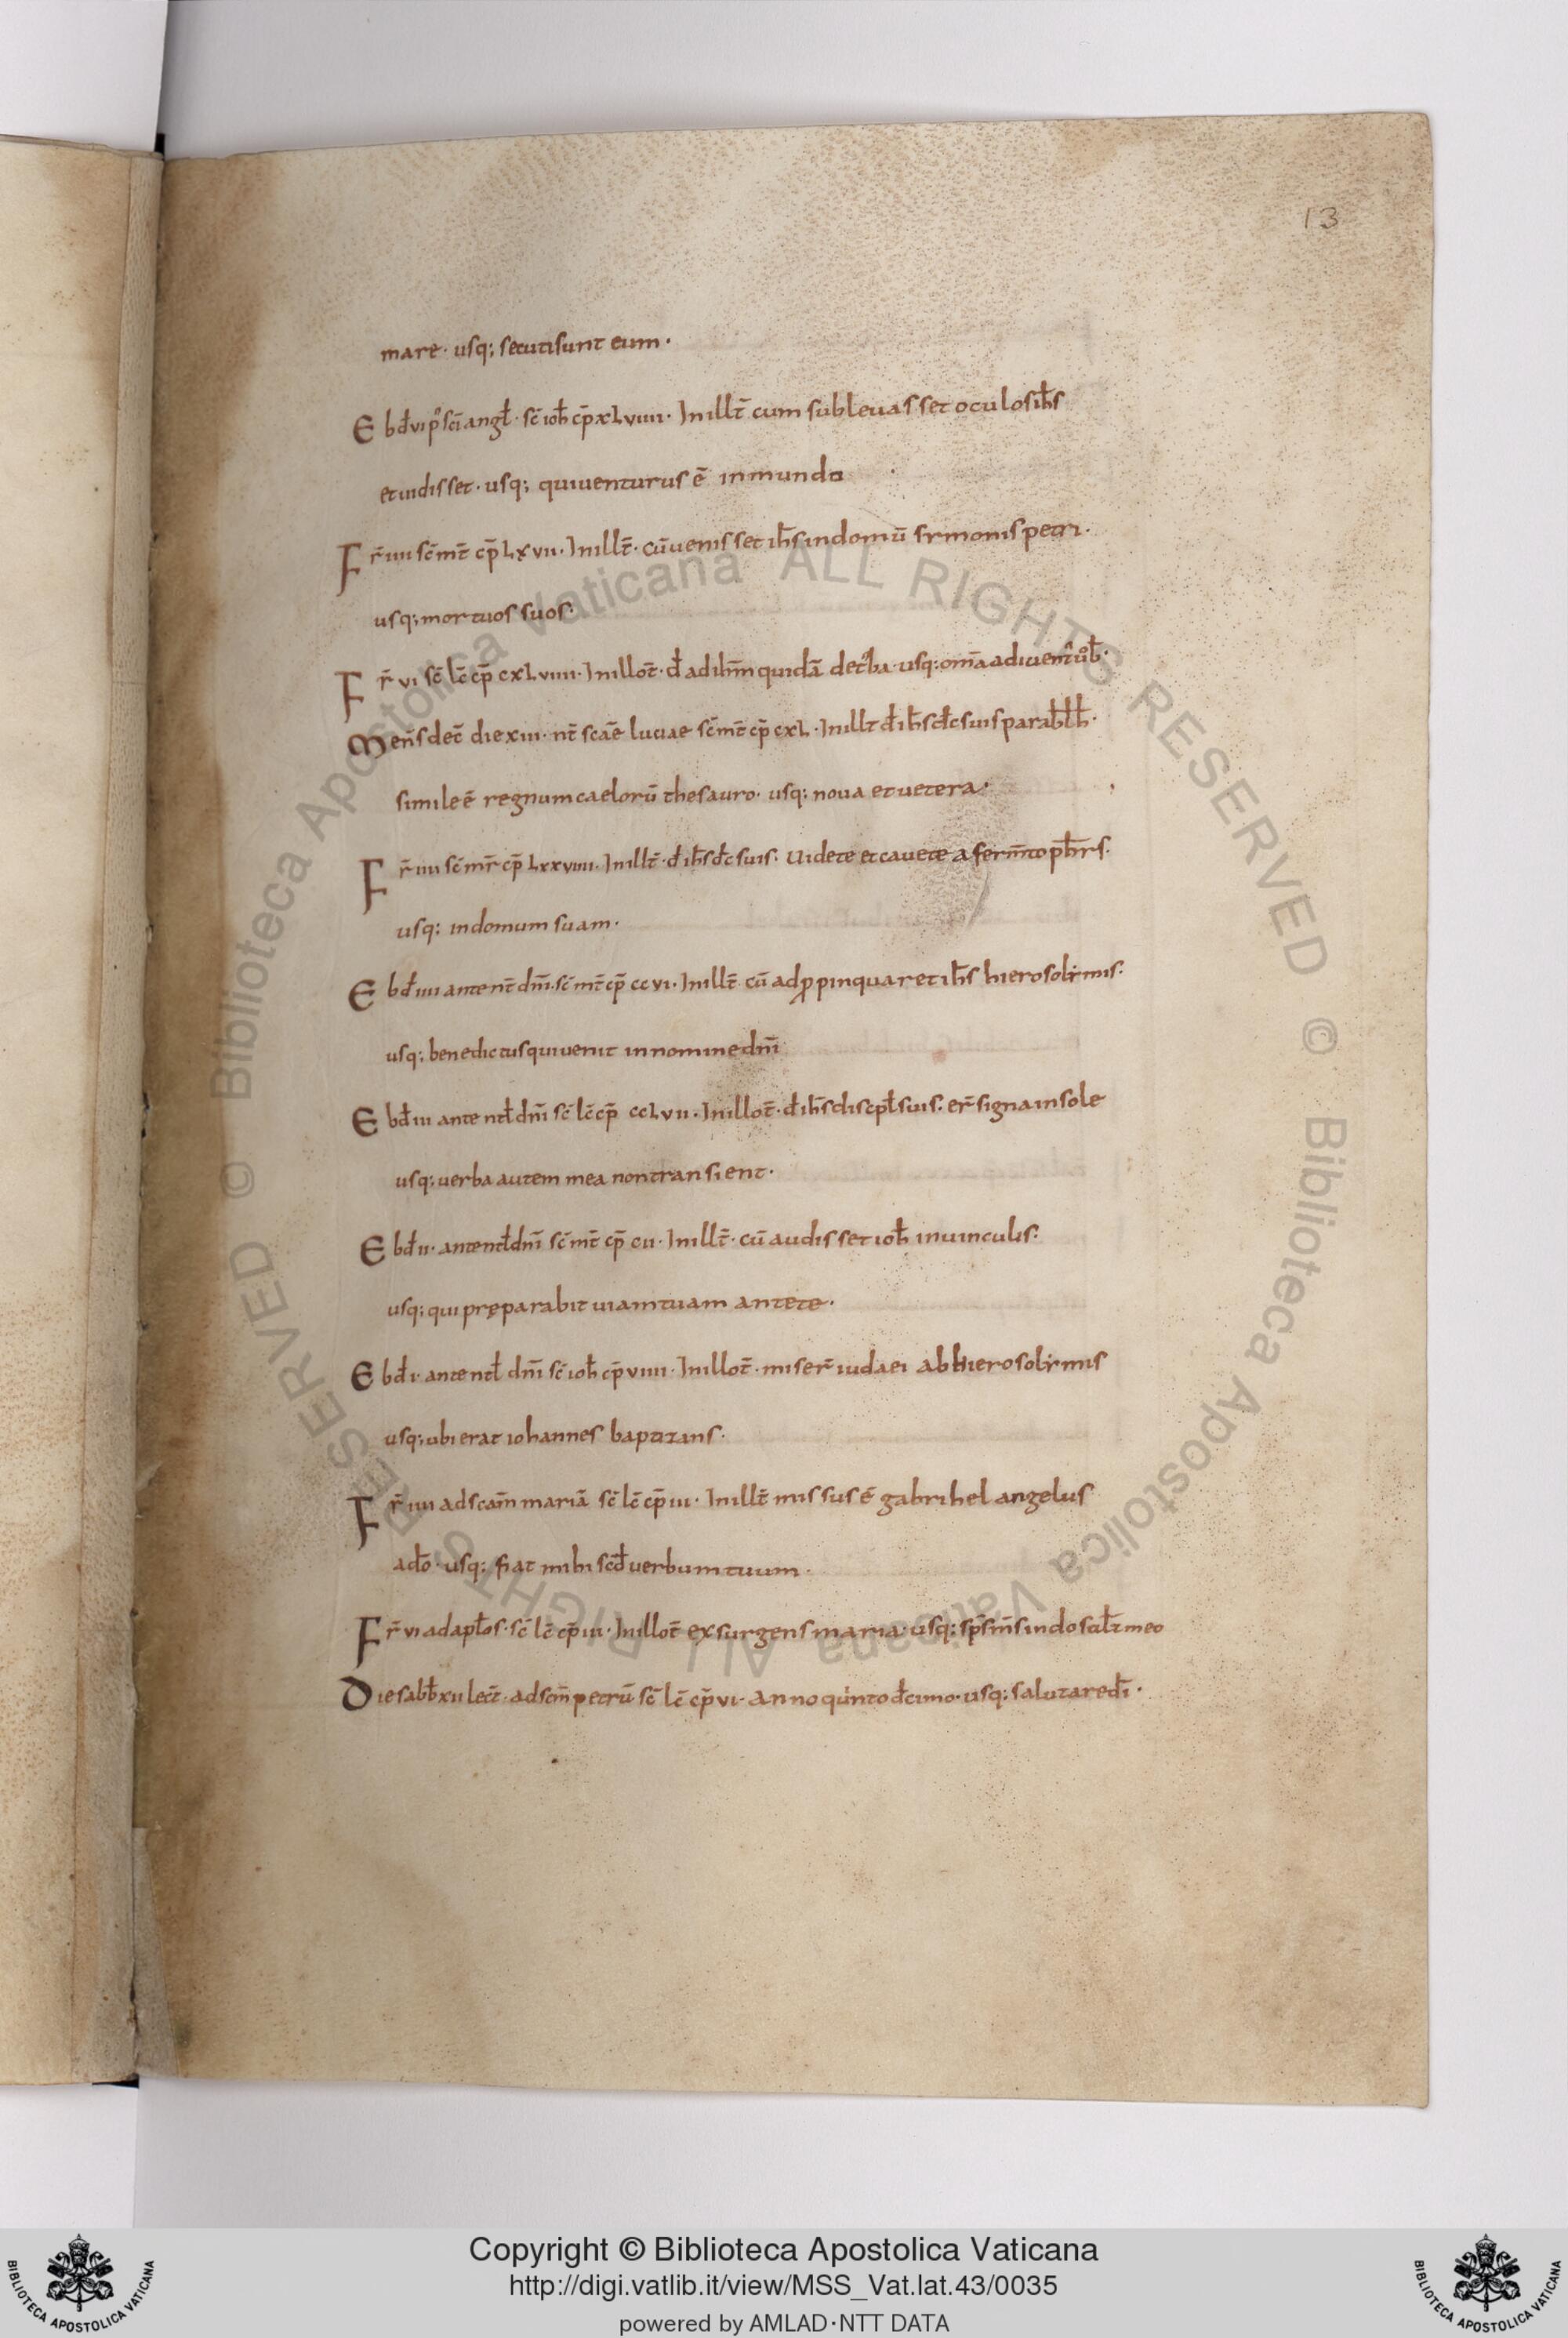 13
mare · usq; secuti sunt eum ·
Ebd̄ vi p̾ sc̄i angl̄ · sc̄ ioh̄ cp̄ xLviiii · In illt̄ cum subleuasset oculos ih̄s
et uidisset · usq; qui uenturus ē in mundo
Fr̄ iiii sc̄ mt̄ cp̄ Lxvii · In illt̄ · cū uenisset ih̄s in domū simonis petri ·
usq; mortuos suos ·
Fr̄ vi sc̄ lc̄ cp̄ cxLviiii · In illot̄ · d̄ ad ihm̄ quidā de turba · usq; om̄a adi
Mens̄ dec̄ die xiii · nt̄ scāe luciae sc̄ mt̄ cp̄ cxL · In illt d̄ ih̄s dc̄ suis
simile ē regnum caelorū thesauro · usq; noua et uetera ·
Fr̄ iiii sc̄ mr̄ cp̄ Lxxviiii · In illt̄ · d̄ ih̄s dc̄ suis · Uidete et cauete a ferm̄to ph̄rs ·
usq; in domum suam ·
Ebd̄ iiii ante nt̄ dn̄i · sc̄ mt̄ cp̄ ccvi · In illt̄ · cū adꝓpinquaret ih̄s hierosolẏmis ·
usq; benedictus qui uenit in nomine dn̄i
Ebd̄ iii ante ntl̄ dn̄i sc̄ lc̄ cp̄ ccLvii · In illot̄ · d̄ ih̄s discipl̄ suis · er̄ signa in sole
usq; uerba autem mea non transient ·
Ebd̄ ii · ante ntl̄ dn̄i sc̄ mt̄ cp̄ cii · In illt̄ · cū audisset ioh̄ in uinculis ·
usq; qui pręparabit uiam tuam ante te ·
Ebd̄ i · ante ntl̄ dn̄i sc̄ ioh̄ cp̄ viiii · In illot̄ · miser̄ iudaei ab hierosolẏmis
usq; ubi erat iohannes baptizans ·
Fr̄ iiii ad scam̄ mariā sc̄ lc̄ cp̄ iii · In illt̄ missus ē gabrihel angelus
a dō · usq; fiat mihi scd̄ uerbum tuum ·
Fr̄ vi ad apl̄os · sc̄ lc̄ cp̄ iii · In illot̄ exsurgens maria · usq; sp̄s m̄s in dō salt̄ meo
Die sabb̄ xii lect̄ · ad scm̄ petrū sc̄ lc̄ cp̄ vi · anno quinto dc̄imo · usq; salutare dī ·
© Biblioteca Apostolica Vaticana ALL RIGHTS RESERVED © Biblioteca Apostolica Vaticana ALL RIGHTS RESERVED
Copyright © Biblioteca Apostolica Vaticana
http://digi.vatlib.it/view/MSS_Vat.lat.43/0035
powered by AMLAD·NTT DATA
BIBLIOTECA APOSTOLICA VATICANA
BIBLIOTECA APOSTOLICA VATICANA